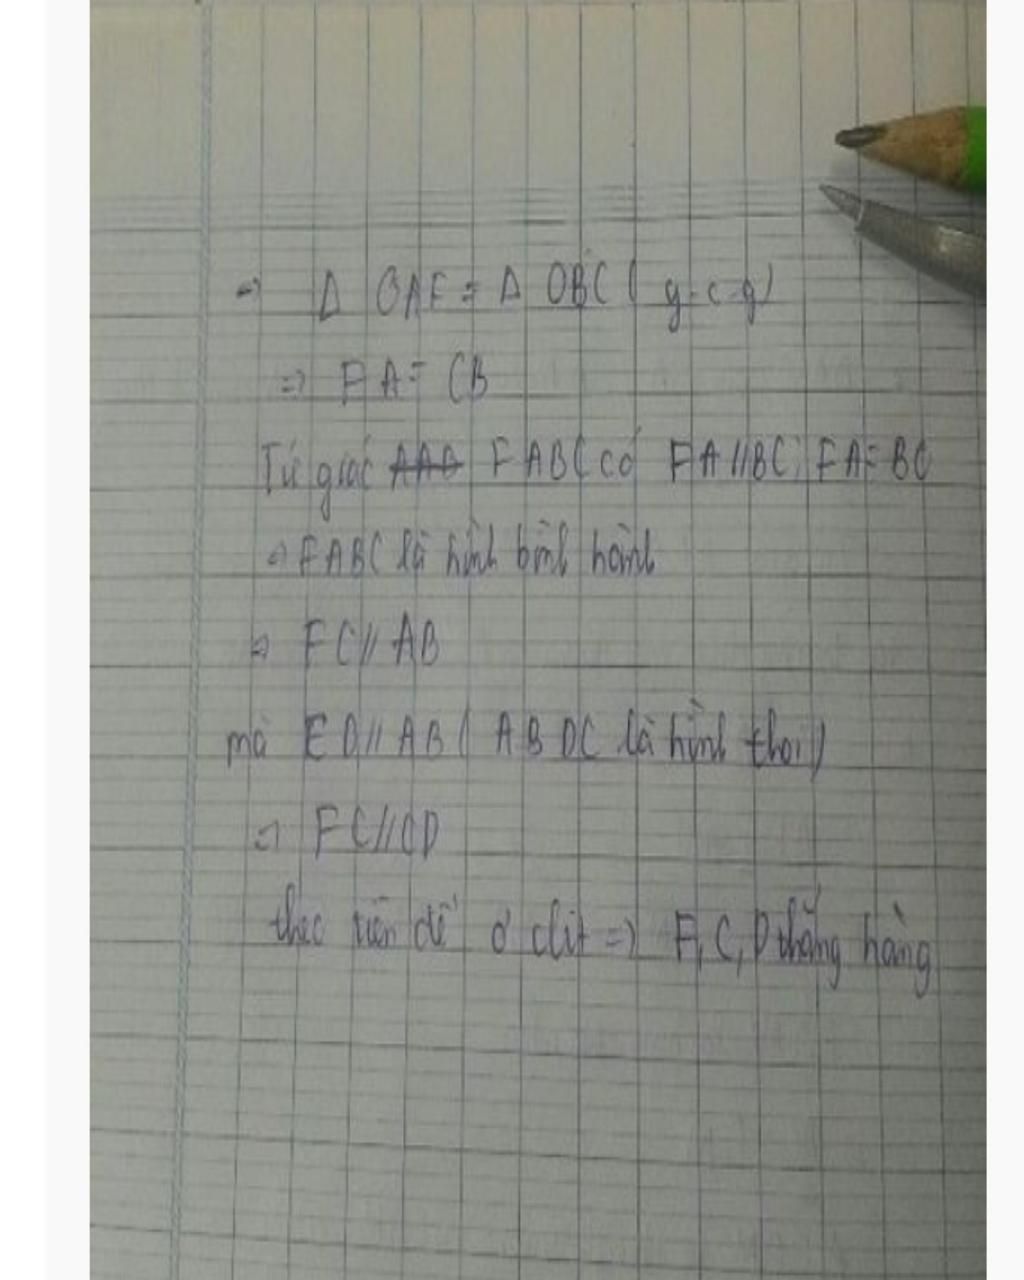 => Δ OAF = Δ OBC ( g-c-g)
=> FA = CB
Tứ giác FABC có FA//BC; FA = BC
=> FABC là hình bình hành
=> FC // AB
mà ED // AB ( ABDC là hình thoi)
=> FC//CD
theo tiên đề ơ clit => F, C, D thẳng hàng